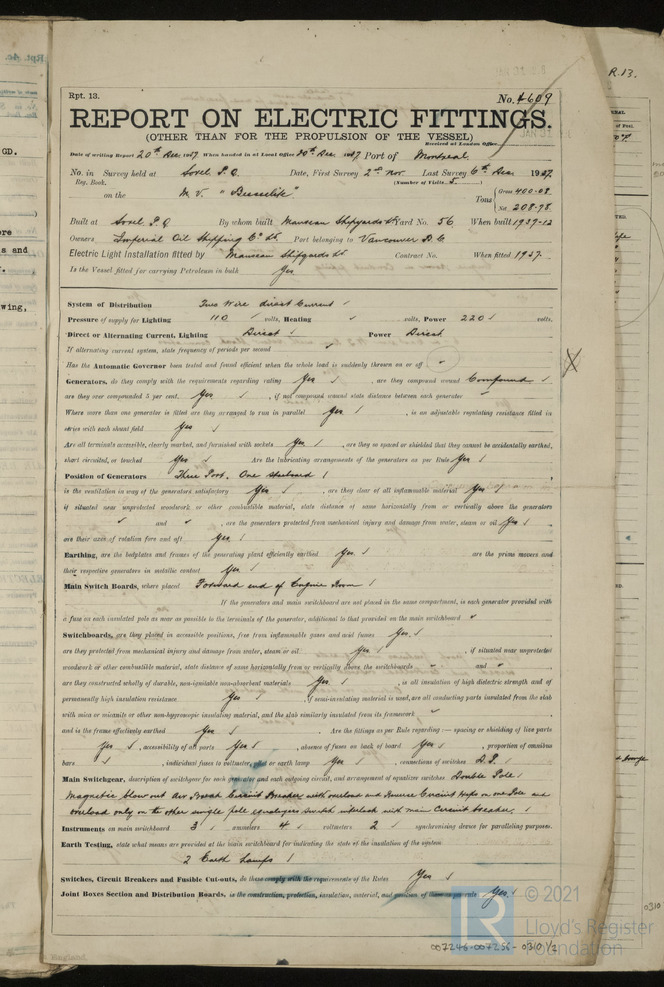 R.13.
Rpt. 13.
No. 4609
REPORT ON ELECTRIC FITTINGS.
(OTHER THAN FOR THE PROPULSION OF THE VESSEL)
Received at London Office
Date of writing Report 20th Dec. 1937 When handed in at Local Office 20th Dec. 1937 Port of Montreal
No. in Survey held at Sorel P.Q. Date, First Survey 2nd Nov. Last Survey 6th Dec. 1937.
Reg. Book. (Number of Visits 5.)
on the M.V. Tons Gross 400.08
Net 208.78.
Built at Sorel P.Q By whom built Manseau Shipyards Ltd Yard No. 56 When built 1937-12
Owners Imperial Oil Shipping Co Ltd Port belonging to Vancouver B.C
Electric Light Installation fitted by Manseau Shipyards Ltd Contract No. When fitted 1937.
Is the Vessel fitted for carrying Petroleum in bulk Yes
System of Distribution Two Wire direct Current
Pressure of supply for Lighting 110 volts, Heating volts, Power 220 volts.
Direct or Alternating Current, Lighting Direct Power Direct
If alternating current system, state frequency of periods per second
Has the Automatic Governor been tested and found efficient when the whole load is suddenly thrown on or off
Generators, do they comply with the requirements regarding rating Yes , are they compound wound Compound
are they over compounded 5 per cent. Yes , if not compound wound state distance between each generator
Where more than one generator is fitted are they arranged to run in parallel Yes , is an adjustable regulating resistance fitted in
series with each shunt field Yes
Are all terminals accessible, clearly marked, and furnished with sockets Yes , are they so spaced or shielded that they cannot be accidentally earthed,
short circuited, or touched Yes Are the lubricating arrangements of the generators as per Rule Yes
Position of Generators Three Port. One starboard
is the ventilation in way of the generators satisfactory Yes , are they clear of all inflammable material Yes
if situated near unprotected woodwork or other combustible material, state distance of same horizontally from or vertically above the generators
and , are the generators protected from mechanical injury and damage from water, steam or oil Yes
are their axes of rotation fore and aft Yes
Earthing, are the bedplates and frames of the generating plant efficiently earthed Yes are the prime movers and
their respective generators in metallic contact Yes
Main Switch Boards, where placed Forward end of Engine Room
If the generators and main switchboard are not placed in the same compartment, is each generator provided with
a fuse on each insulated pole as near as possible to the terminals of the generator, additional to that provided on the main switchboard
Switchboards, are they placed in accessible positions, free from inflammable gases and acid fumes Yes.
are they protected from mechanical injury and damage from water, steam or oil Yes , if situated near unprotected
woodwork or other combustible material, state distance of same horizontally from or vertically above the switchboards and
are they constructed wholly of durable, non-ignitable non-absorbent materials Yes. , is all insulation of high dielectric strength and of
permanently high insulation resistance Yes , if semi-insulating material is used, are all conducting parts insulated from the slab
with mica or micanite or other non-hygroscopic insulating material, and the slab similarly insulated from its framework
and is the frame effectively earthed Yes Are the fittings as per Rule regarding:— spacing or shielding of live parts
Yes , accessibility of all parts Yes , absence of fuses on back of board Yes , proportion of omnibus
bars , individual fuses to voltmeter, pilot or earth lamp Yes , connections of switches D.P.
Main Switchgear, description of switchgear for each generator and each outgoing circuit, and arrangement of equalizer switches Double Pole
Magnetic blow out Air Break Circuit Breaker with overload and Reverse Current trips on one Pole and
overload only on the other single pole equalizers switch interlock with main Circuit breaker.
Instruments on main switchboard 3 ammeters 4 voltmeters 2 synchronising device for paralleling purposes.
Earth Testing, state what means are provided at the main switchboard for indicating the state of the insulation of the system
2 Earth Lamps
Switches, Circuit Breakers and Fusible Cut-outs, do these comply with the requirements of the Rules Yes
Joint Boxes Section and Distribution Boards, is the construction, protection, insulation, material, and position of these as per rule Yes.
LR
© 2021
Lloyd's Register
Foundation
007246-007256-0310 1/2